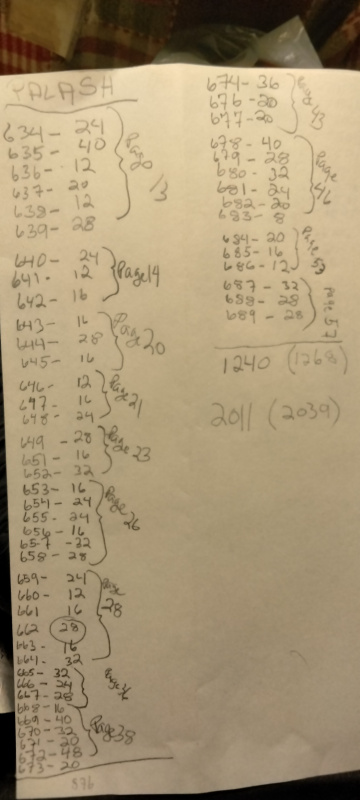 YALASH
634- 24
635- 40
636- 12
637- 20
638- 12
639- 28
Page 13
640- 24
641- 12
642- 16
Page 19
643- 16
644- 28
645- 16
Page 20
646- 12
647- 16
648- 24
Page 21
649 - 28
651- 16
652- 32
Page 23
653- 16
654- 24
655- 24
656- 16
657 -32
658- 28
Page 26
659- 24
660- 12
661 16
662 28
663- 16
664- 32
Page 28
665- 32
666- 24
667- 28
668- 16
669- 40
670- 32
671- 20
672- 48
673- 20
Page 38
876
674- 36
676- 20
677- 20
Page 43
678- 40
679- 28
680- 32
681- 24
682- 20
683- 8
Page 46
684- 20
685- 16
686- 12
Page 53
687- 32
688- 28
689- 28
Page 57
1240 (1268)
2011 (2039)